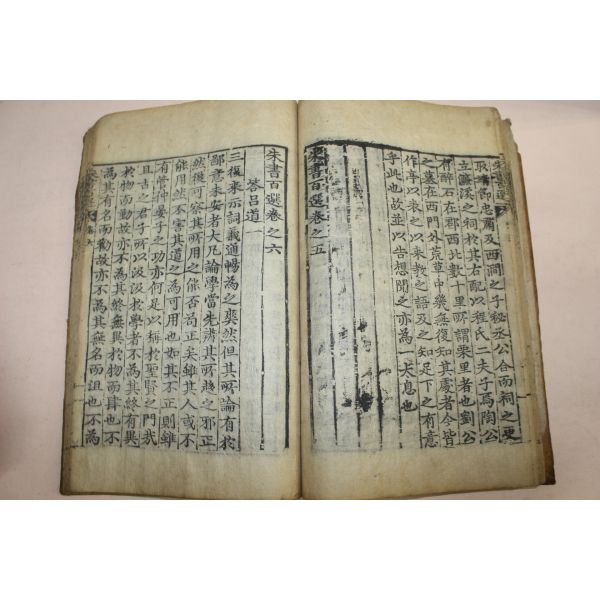 取靖節忠肅及西澗之子秘丞公合而祠之更
立濂溪之祠於其右配以程氏二夫子焉陶公
有醉石在郡西北數十里所謂栗里者也劉公
之墓在西門外荒草中幾無復知其處者今皆
作亭以表之以來教之語及之知足下之有意
乎此也故並以告想聞之亦爲一大息也
朱書百選卷之五
朱書百選卷之六
答呂道一
三復來示詞義通暢爲之爽然但其所論有於
鄙意未安者大凡論學當先辨其所趍之邪正
然後可察其所用之能否苟正矣雖其人或不
能用然不害其道之爲可用也如其不正則雖
有管仲晏子之功亦何足以稱於聖賢之門哉
且古之君子所以汲汲於學者不爲其終有異
於物而勤故亦不爲其終無異於物而肆也不
爲其有名而勸故亦不爲其無名而沮也不爲